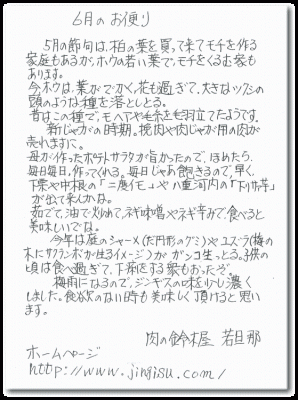 6月のお便り
5月の節句は、柏の葉を買って来てモチを作る
家庭もあるが、ホウの若い葉で、モチをくるむ家も
あります。
今ホウは、葉がでかく、花も過ぎて、大きなツクシの
頭のような種を落としとる。
昔はこの種で、モヘアや毛糸を毛羽立てたようです。
新じゃがの時期。挽肉や肉じゃが用の肉が
売れますに。
母が作ったポテトサラダが旨かったので、ほめたら、
毎日毎日、作ってくれる。毎日じゃあ飽きるので、早く、
下栗や中根の「二度イモ」や八重河内の「下リサ芋」
が出て来んかな。
茹でて、油で炒めて、ネギ味噌やネギ辛みで、食べると
美味しいでな。
今年は庭のシャーメ(だ円形のグミ)やユスラ(梅の
木にサクランボが生るイメージ)が ガンコ生っとる。子供の
頃は食べ過ぎて、下痢をする衆もおったぞ。
梅雨になるので、ジンギスの味を少し濃く
しました。食欲のない時も美味しく頂けると思い
ます。
肉の鈴木屋 若旦那
ホームページ
http://www.jingisu.com/